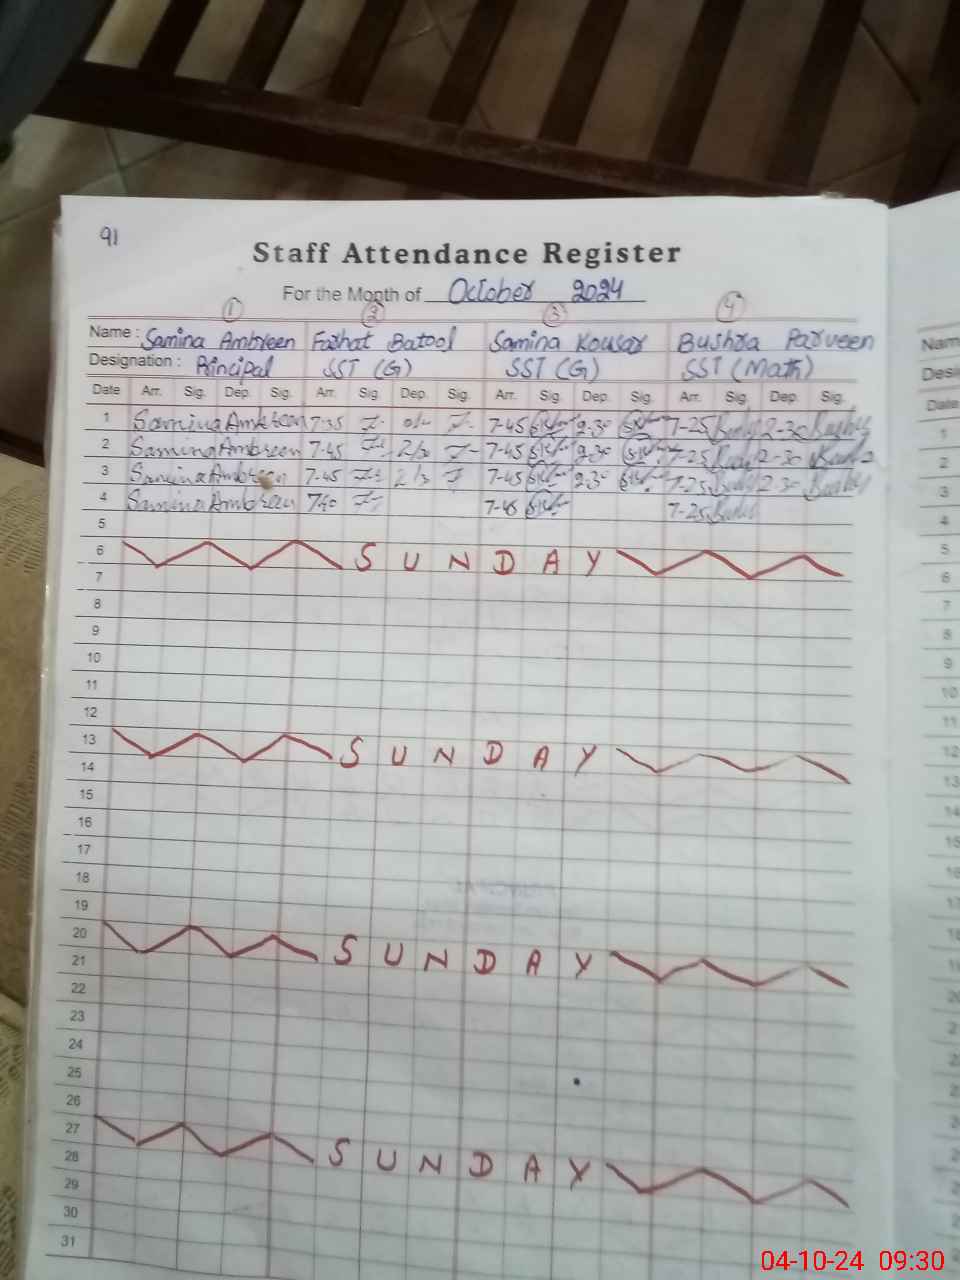 91
Staff Attendance Register
For the Month of October 2024
1 2 3 4
Name : Samina Ambreen Farhat Batool Samina Kousar Bushra Parveen
Designation : Principal SST (G) SST (G) SST (Math)
Date Arr. Sig. Dep. Sig. Arr. Sig. Dep. Sig. Arr. Sig. Dep. Sig. Arr. Sig. Dep. Sig.
1 Samina Ambreen 7-35 7-45 2-30 7-25 2-30
2 Samina Ambreen 7-45 7-45 2-30 7-25 2-30
3 Samina Ambreen 7-45 7-45 2-30 7-25 2-30
4 Samina Ambreen 7-40 7-45 7-25
5
6 SUNDAY
7
8
9
10
11
12
13 SUNDAY
14
15
16
17
18
19
20 SUNDAY
21
22
23
24
25
26
27 SUNDAY
28
29
30
31
Name
Desig
Date
1
2
3
4
5
6
7
8
9
10
11
12
13
14
15
04-10-24 09:30